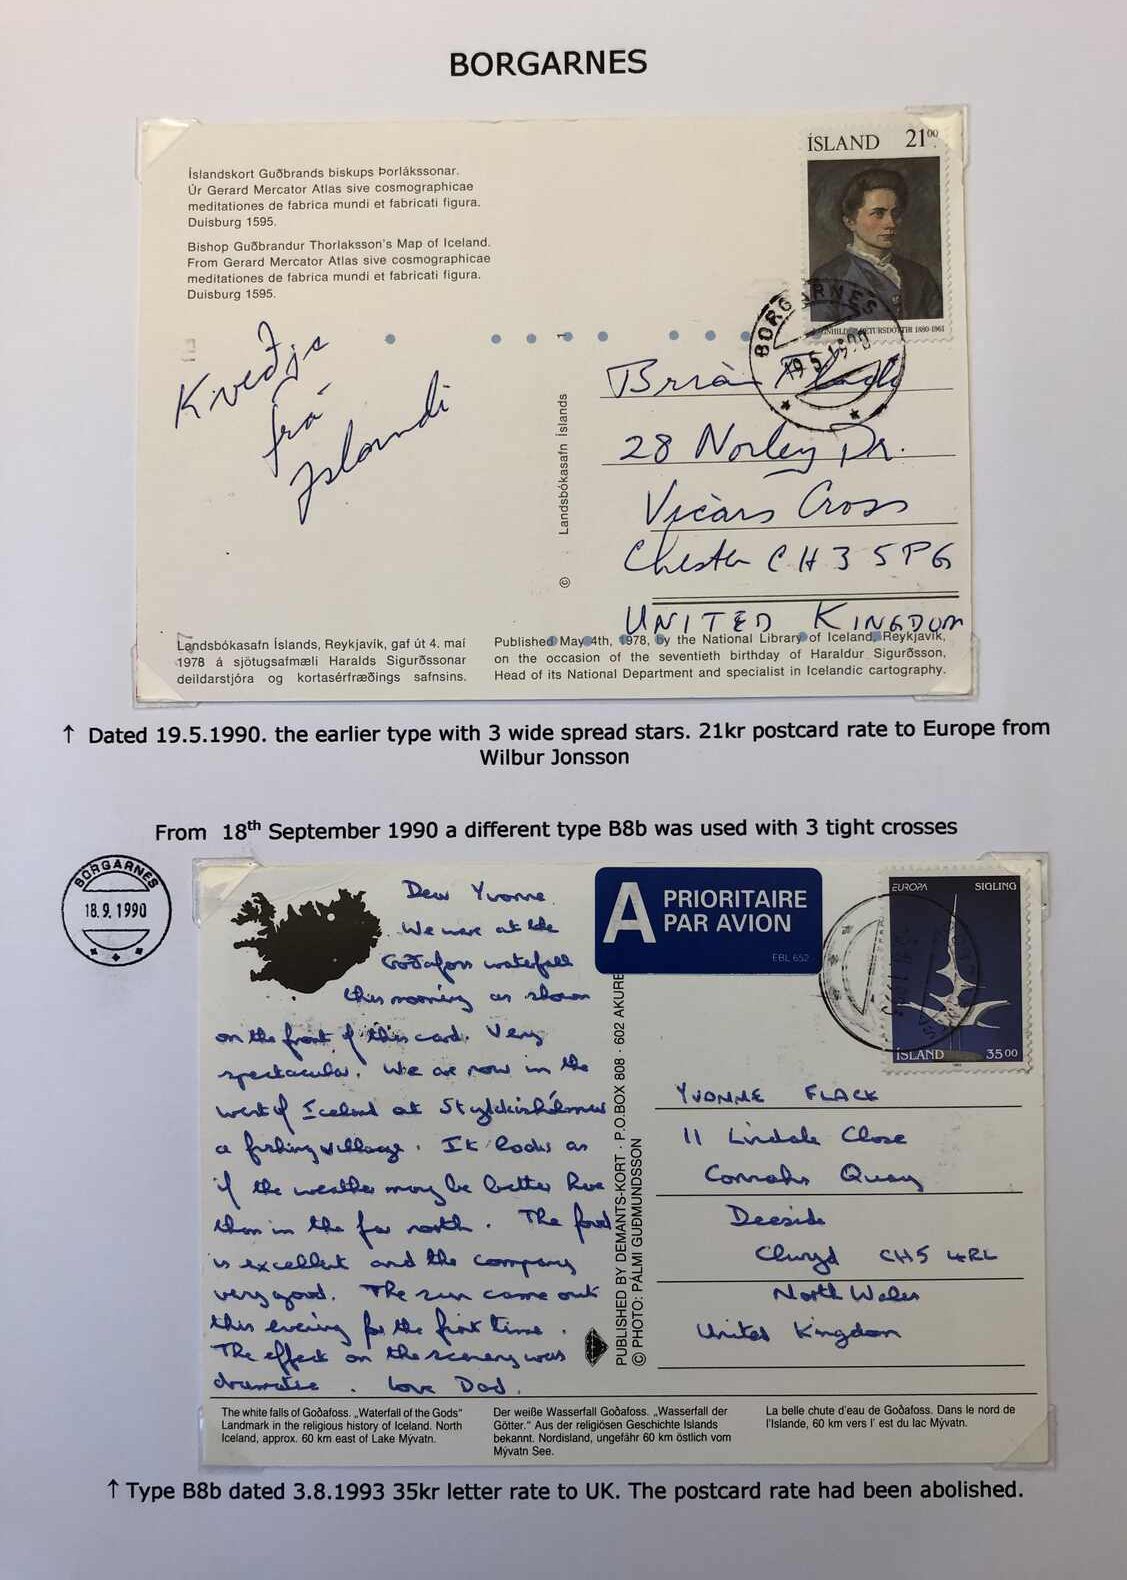 BORGARNES
Íslandskort Guðbrands biskups Þorlákssonar.
Úr Gerard Mercator Atlas sive cosmographicae
meditationes de fabrica mundi et fabricati figura.
Duisburg 1595.
Bishop Guðbrandur Thorlaksson's Map of Iceland.
From Gerard Mercator Atlas sive cosmographicae
meditationes de fabrica mundi et fabricati figura.
Duisburg 1595.
ÍSLAND 21⁰⁰
PÉTURSDÓTTIR 1880-1961
BORGARNES
19.5.1990
Kveðja
frá
Íslandi
© Landsbókasafn Íslands
Brian
28 Norley Dr.
Vicars Cross
Chester CH3 5PG
UNITED KINGDOM
Landsbókasafn Íslands, Reykjavík, gaf út 4. maí
1978 á sjötugsafmæli Haralds Sigurðssonar
deildarstjóra og kortasérfræðings safnsins.
Published May 4th, 1978, by the National Library of Iceland, Reykjavík,
on the occasion of the seventieth birthday of Haraldur Sigurðsson,
Head of its National Department and specialist in Icelandic cartography.
↑ Dated 19.5.1990. the earlier type with 3 wide spread stars. 21kr postcard rate to Europe from
Wilbur Jonsson
From 18th September 1990 a different type B8b was used with 3 tight crosses
BORGARNES
18.9.1990
Dear Yvonne
We were at the
Goðafoss waterfall
this morning as shown
on the front of this card. Very
spectacular. We are now in the
west of Iceland at Stykkishólmur
a fishing village. It looks as
if the weather may be better here
than in the far north. The food
is excellent and the company
very good. The sun came out
this evening for the first time.
The effect on the scenery was
dramatic. Love Dad.
A PRIORITAIRE
PAR AVION
EBL 652
EUROPA SIGLING
ÍSLAND 35 00
PUBLISHED BY DEMANTS-KORT · P.O.BOX 808 · 602 AKURE
© PHOTO: PÁLMI GUÐMUNDSSON
YVONNE FLACK
11 Lindale Close
Connahs Quay
Deeside
Clwyd CH5 4RL
North Wales
United Kingdom
The white falls of Goðafoss. „Waterfall of the Gods"
Landmark in the religious history of Iceland. North
Iceland, approx. 60 km east of Lake Mývatn.
Der weiße Wasserfall Goðafoss. „Wasserfall der
Götter." Aus der religiösen Geschichte Islands
bekannt. Nordisland, ungefähr 60 km östlich vom
Mývatn See.
La belle chute d'eau de Goðafoss. Dans le nord de
l'Islande, 60 km vers l' est du lac Mývatn.
↑ Type B8b dated 3.8.1993 35kr letter rate to UK. The postcard rate had been abolished.